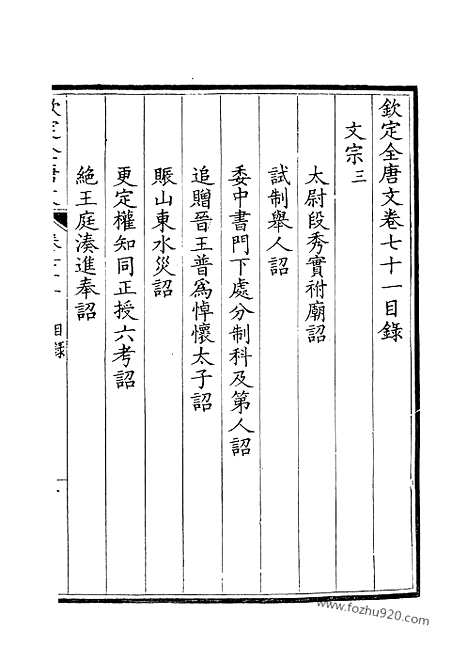 欽定全唐文卷七十一目錄
文宗三
太尉段秀實祔廟詔
試制舉人詔
委中書門下處分制科及第人詔
追贈晉王普爲悼懷太子詔
賑山東水災詔
更定權知同正授六考詔
絶王庭湊進奉詔
目錄
www.fozhu920.com